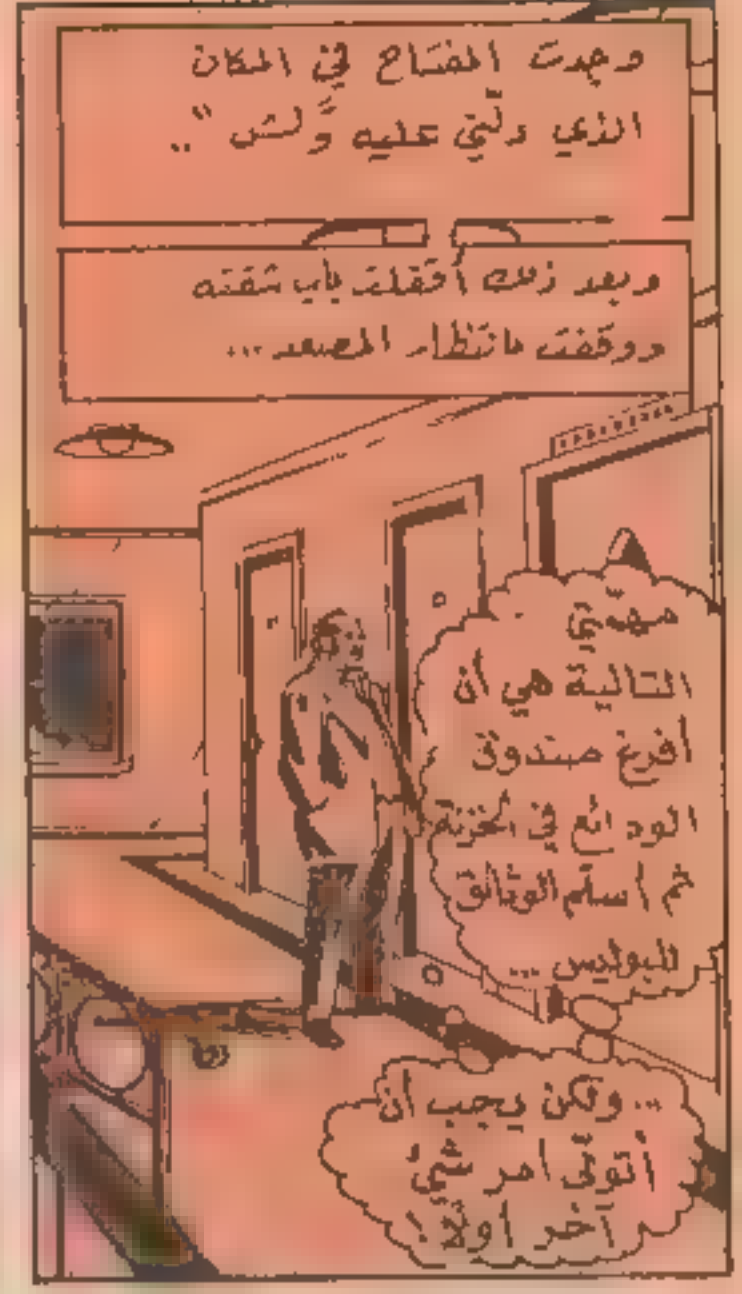 وجدت المفتاح في المكان
الذي دلّني عليه وَلش "..
وبعد ذلك أقفلت باب شقته
ووقفت بانتظار المصعد...
مهمّتي
التالية هي أن
أفرغ صندوق
الودائع في الخزنة
ثم أسلّم الوثائق
للبوليس ...
... ولكن يجب أن
أتولّى أمر شيء
آخر أولاً !